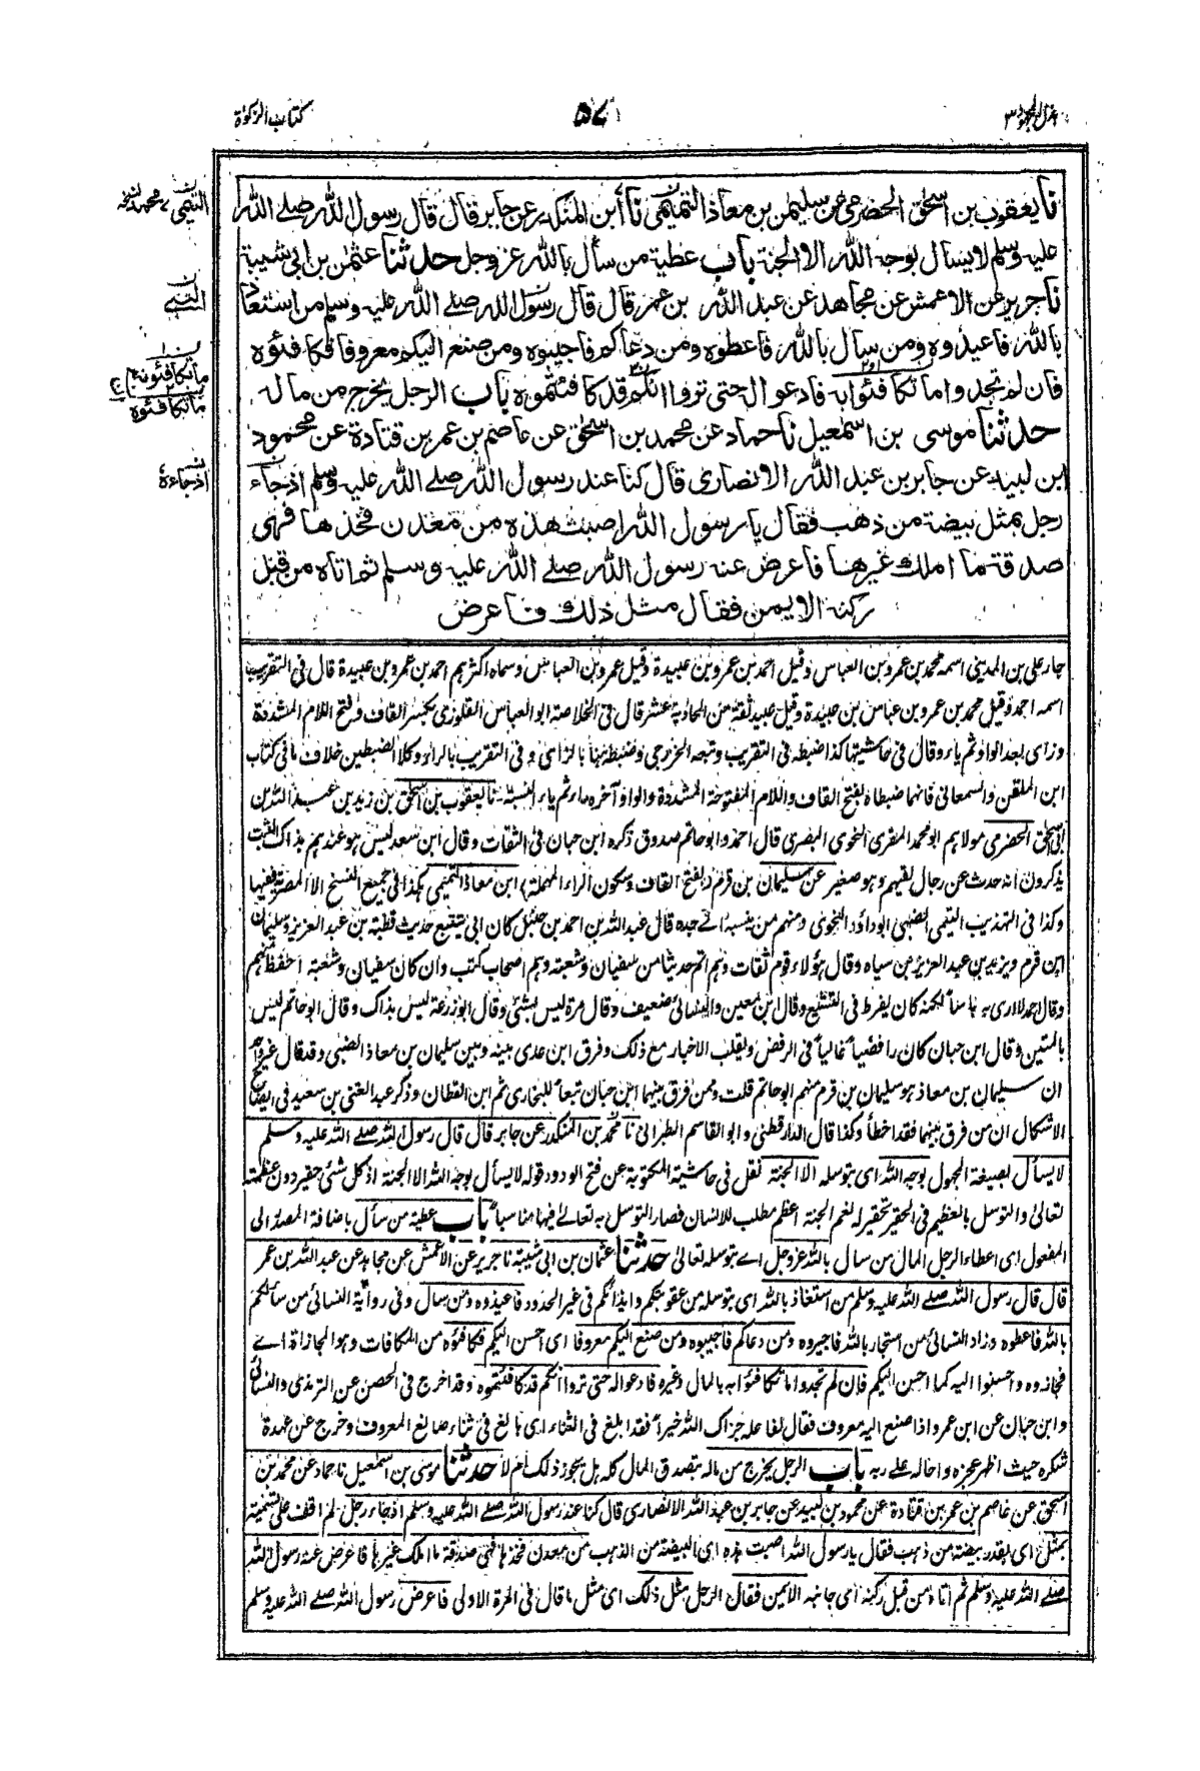 كتاب الزكوٰة
٥٧
بذل المجهود ٣
نا يعقوب بن اسحٰق الحضرمي عن سليمٰن بن معاذ التميمي نا ابن المنكدر عن جابر قال قال رسول الله صلے الله
عليه وسلم لا يسأل بوجه الله الا الجنة باب عطية من سأل بالله عز وجل حدثنا عثمٰن بن ابي شيبة
نا جرير عن الاعمش عن مجاهد عن عبد الله بن عمر قال قال رسول الله صلے الله عليه وسلم من استعاذ
بالله فاعيذوه ومن سأل بالله فاعطوه ومن دعاكم فاجيبوه ومن صنع اليكم معروفا فكافئوه
فان لم تجدوا ما تكافئوا به فادعوا له حتى تروا انكم قد كافئتموه باب الرجل يخرج من ماله
حدثنا موسى بن اسمٰعيل نا حماد عن محمد بن اسحٰق عن عاصم بن عمر بن قتادة عن محمود
ابن لبيد عن جابر بن عبد الله الانصارى قال كنا عند رسول الله صلے الله عليه وسلم اذ جاء
رجل بمثل بيضة من ذهب فقال يا رسول الله اصبت هذه من معدن فخذها فهى
صدقة ما املك غيرها فاعرض عنه رسول الله صلے الله عليه وسلم ثم اتاه من قبل
ركنه الايمن فقال مثل ذلك فاعرض
التيمي محمد نسخه
النبي
ما تكافئونه
ما تكافئوه
اذ جاءه
جار علي بن المديني اسمه محمد بن عمرو بن العباس وقيل احمد بن عمرو بن عبيدة وقيل عمرو بن العباس وسماه اكثرهم احمد بن عمرو بن عبيدة قال في التقريب
اسمه احمد وقيل محمد بن عمرو بن عباس بن عبيدة وقيل عبيد ثقة من الحادية عشر قال في الخلاصة ابو العباس القلوزى بكسر القاف وفتح اللام المشددة
وزاى بعد الواو ثم ياء وقال في حاشيتها كذا ضبطه في التقريب وتبعه الخزرجي وضبطه هنا بالزاى و في التقريب بالراء وكلا الضبطين خلاف ما في كتاب
ابن الملقن والسمعاني فانهما ضبطاه بفتح القاف واللام المفتوحة المشددة والواو آخره راء ثم ياء النسبة نا يعقوب بن اسحٰق بن زيد بن عبد الله بن
ابي اسحٰق الحضرمى مولاهم ابو محمد المقرى النحوى البصرى قال احمد وابو حاتم صدوق ذكره ابن حبان في الثقات وقال ابن سعد ليس هو عندهم بذاك الثبت
يذكرون انه حدث عن رجال لقيهم وهو صغير عن سليمان بن قرم (بفتح القاف وسكون الراء المهملة) ابن معاذ التميمى هكذا في جميع النسخ الا المصرية ففيها
وكذا فى التهذيب التيمى الضبى ابو داؤد النحوى ومنهم من ينسبه الے جده قال عبد الله بن احمد بن حنبل كان ابى يتتبع حديث قطبة بن عبد العزيز وسليمان
ابن قرم ويزيد بن عبد العزيز بن سياه وقال هؤلاء قوم ثقات وهم اتم حديثا من سفيان وشعبة وهم اصحاب كتب وان كان سفيان وشعبة احفظ منهم
وقال احمد لا ارى به باسا لكنه كان يفرط فى التشيع وقال ابن معين والنسائى ضعيف وقال مرة ليس بشئ وقال ابو زرعة ليس بذاك وقال ابو حاتم ليس
بالمتين وقال ابن حبان كان رافضيا غاليا في الرفض ويقلب الاخبار مع ذلك وفرق ابن عدى بينه وبين سليمان بن معاذ الضبى وقد قال غير واحد
ان سليمان بن معاذ هو سليمان بن قرم منهم ابو حاتم قلت وممن فرق بينهما ابن حبان تبعا للبخارى ثم ابن القطان وذكر عبد الغني بن سعيد في ايضاح
الاشكال ان من فرق بينهما فقد اخطأ وكذا قال الدارقطنى وابو القاسم الطبرانى نا محمد بن المنكدر عن جابر قال قال رسول الله صلے الله عليه وسلم
لا يسأل بصيغة المجهول بوجه الله اى بتوسله الا الجنة نقل فى حاشية المكتوبة عن فتح الودود قوله لا يسأل بوجه الله الا الجنة اذ كل شئ حقير دون عظمته
تعالىٰ والتوسل بالعظيم فى الحقير تحقير له نعم الجنة اعظم مطلب للانسان فصار التوسل به تعالےٰ فيها مناسبا باب عطية من سأل باضافة المصدر الى
المفعول اى اعطاء الرجل المال من سال بالله عز وجل اے بتوسله تعالىٰ حدثنا عثمان بن ابى شيبة نا جرير عن الاعمش عن مجاهد عن عبد الله بن عمر
قال قال رسول الله صلے الله عليه وسلم من استعاذ بالله اى بتوسله من عقوبتكم وايذائكم فى غير الحدود فاعيذوه ومن سال وفى رواية النسائى من سألكم
بالله فاعطوه وزاد النسائى من استجار بالله فاجيروه ومن دعاكم فاجيبوه ومن صنع اليكم معروفا اى احسن اليكم فكافئوه من المكافات وهو المجازاة اے
فجازوه واحسنوا اليه كما احسن اليكم فان لم تجدوا ما تكافئوا به بالمال وغيره فادعوا له حتى تروا انكم قد كافئتموه وقد اخرج فى الحصن عن الترمذى والنسائى
وابن حبان عن ابن عمر واذا صنع اليه معروف فقال لفاعله جزاك الله خيرا فقد ابلغ فى الثناء اى بالغ فى ثناء صانع المعروف وخرج عن عهدة
شكره حيث اظهر عجزه واحاله على ربه باب الرجل يخرج من ماله بتصدق المال كله هل يجوز ذلك ام لا حدثنا موسى بن اسمٰعيل نا حماد عن محمد بن
اسحق عن عاصم بن عمر بن قتادة عن محمود بن لبيد عن جابر بن عبد الله الانصارى قال كنا عند رسول الله صلے الله عليه وسلم اذ جاء رجل لم اقف على تسميته
بمثل اى بقدر بيضة من ذهب فقال يا رسول الله اصبت هذه اى البيضة من الذهب من معدن فخذها فهى صدقة ما املك غيرها فاعرض عنه رسول الله
صلے الله عليه وسلم ثم اتاه من قبل ركنه اى جانبه الايمن فقال الرجل مثل ذلك اى مثل ما قال فى المرة الاولى فاعرض رسول الله صلے الله عليه وسلم